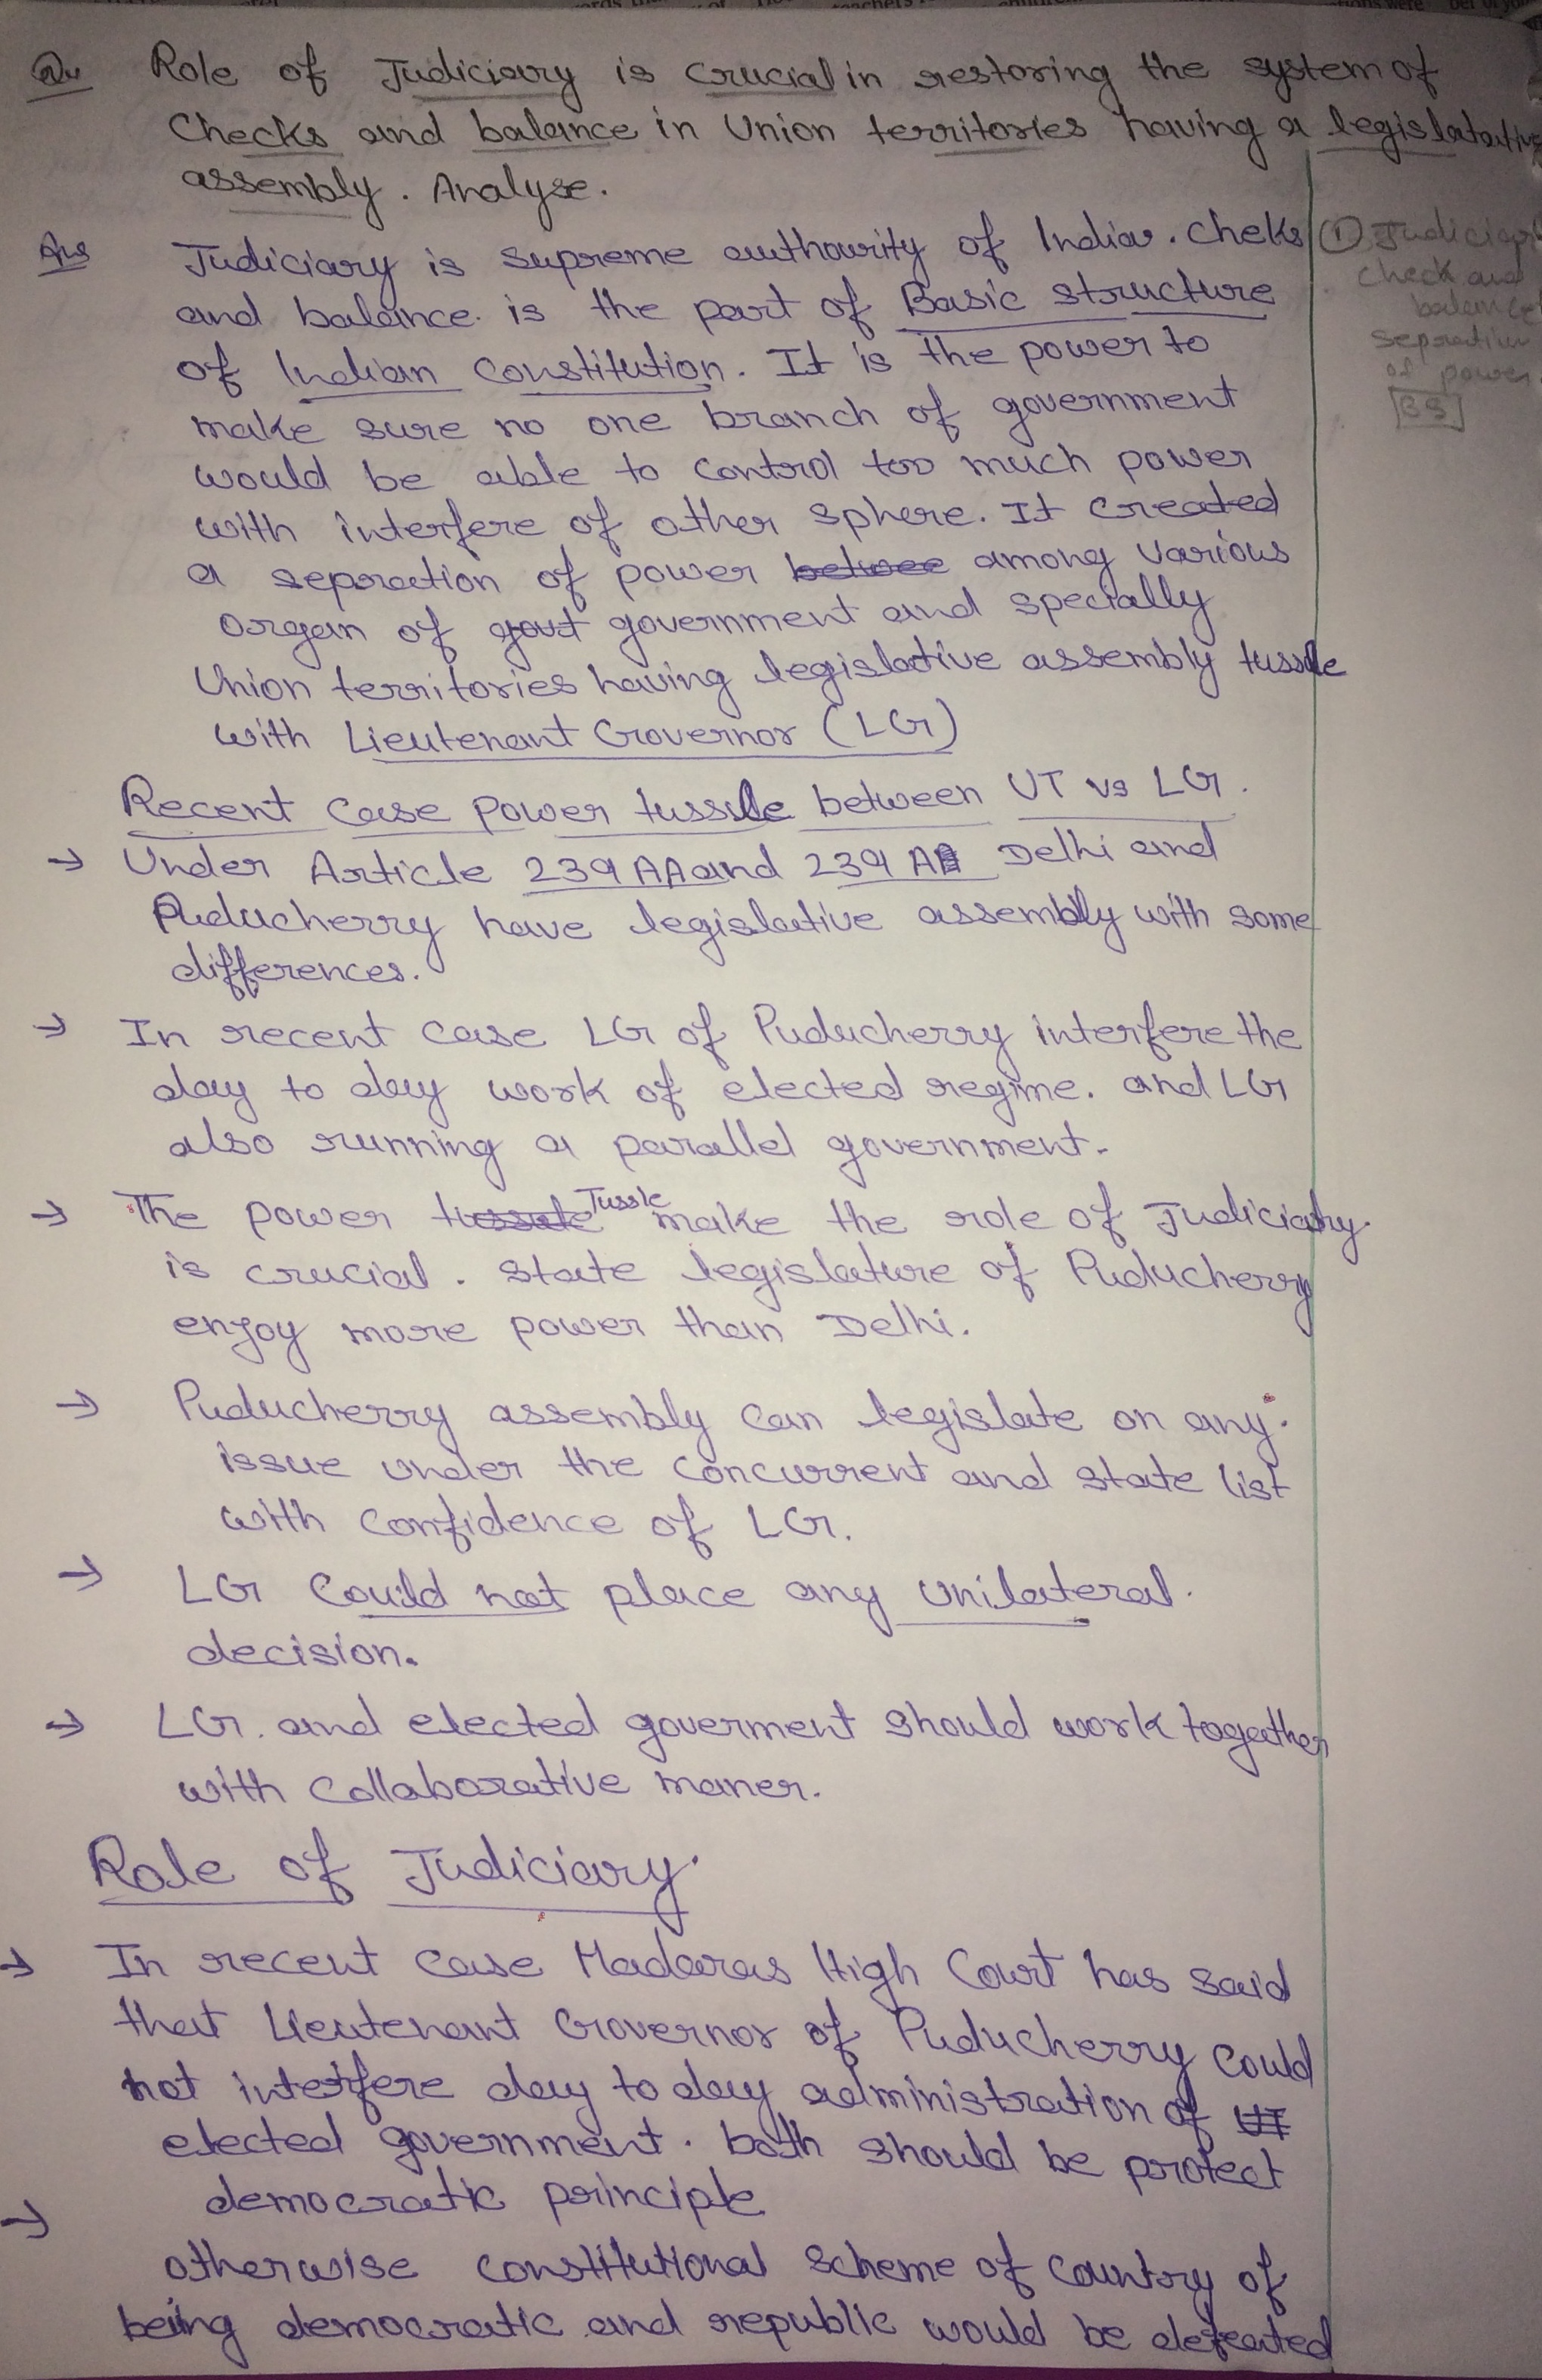 Qu Role of Judiciary is crucial in restoring the system of
Checks and balance in Union territories having a legislatative
assembly. Analyse.
Ans Judiciary is supreme authourity of India. Cheks
and balance is the part of Basic structure
of Indian Constitution. It is the power to
make sure no one branch of government
would be able to control too much power
with interfere of other sphere. It created
a sepration of power betwee among various
organ of govt government and specially
Union territories having legislative assembly tussle
with Lieutenant Governor (LG)
① Judiciary
check and
balance
sepration
of power
BS
Recent case power tussle between UT vs LG.
→ Under Article 239 AA and 239 A Delhi and
Puducherry have legislative assembly with some
differences.
→ In recent case LG of Puducherry interfere the
day to day work of elected regime. and LG
also running a parallel government.
→ The power tussle Tussle make the role of Judiciary
is crucial. State legislature of Puducherry
enjoy more power than Delhi.
→ Puducherry assembly can legislate on any
issue under the concurrent and state list
with confidence of LG.
→ LG Could not place any unilateral
decision.
→ LG. and elected goverment should work together
with collaborative maner.
Role of Judiciary
→ In recent case Madaras High Court has said
that Lieutenant Governor of Puducherry could
not interfere day to day administration of UT
elected government. both should be protect
democratic principle
→ otherwise constitutional scheme of country of
being democratic and republic would be defeated